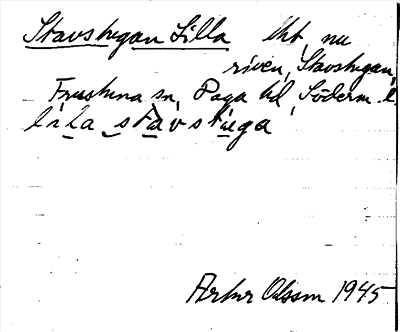 Stavstugan Lilla lht, nu
riven, Stavstugan,
Frustuna sn, Daga hd, Söderm. l.
lila stavstuga
Artur Olsson 1945